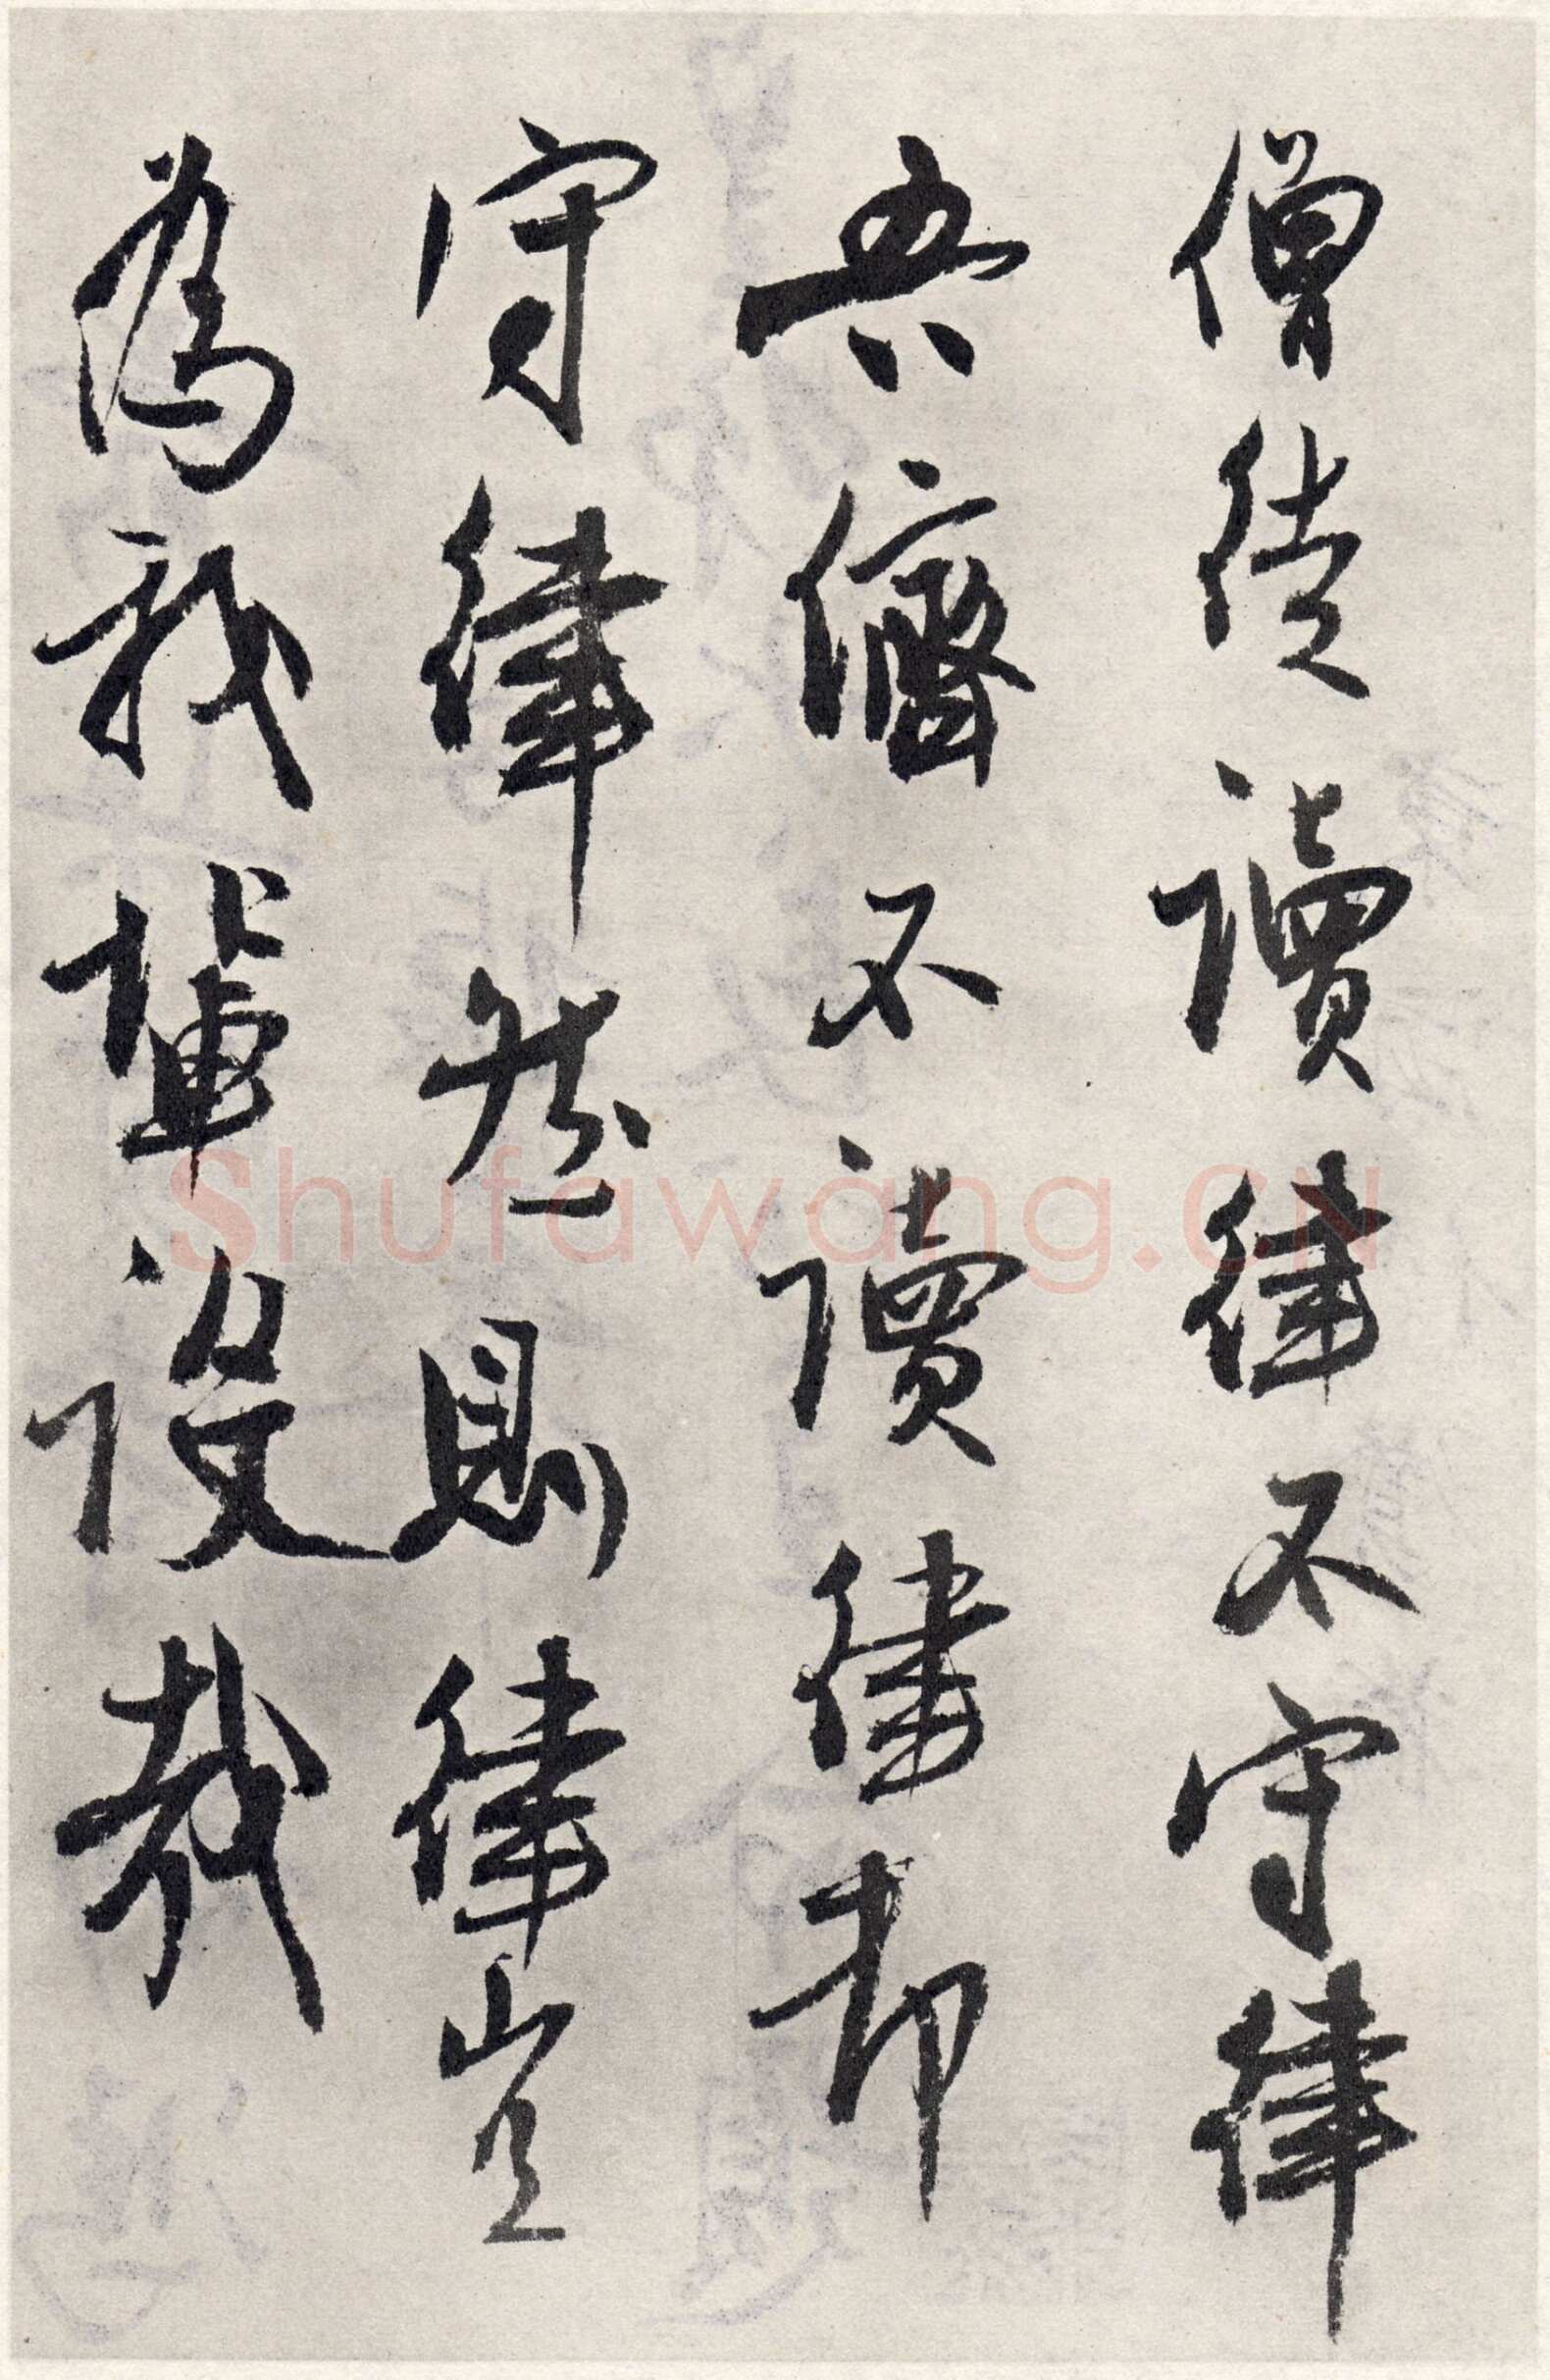 僧徒讀律不守律
吾儕不讀律却
守律然則律豈
為我輩設哉
Shufawang.CN